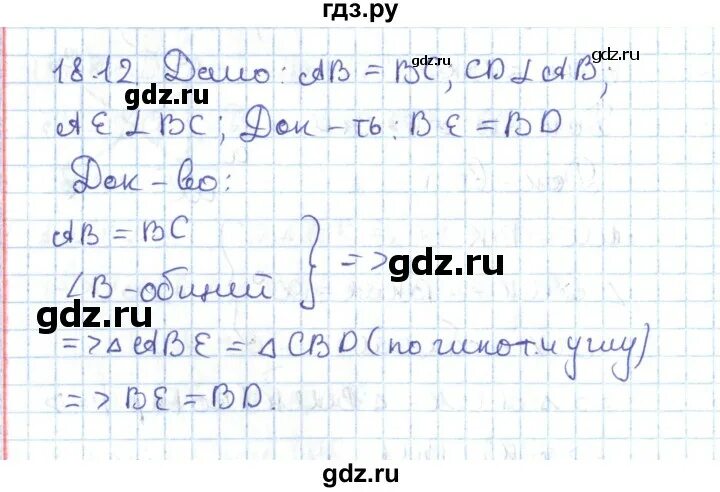 гдз.ру
18.12 Дано: AB = BC, CD ⊥ AB;
gdz.ru
gdz.ru
gdz.ru
AE ⊥ BC; Док-ть: BE = BD
Док-во:
AB = BC
∠B - общий } =>
gdz.ru
gdz.ru
=> △ ABE = △ CBD (по гипот. и углу)
=> BE = BD.
gdz.ru
gdz.ru
gdz.ru